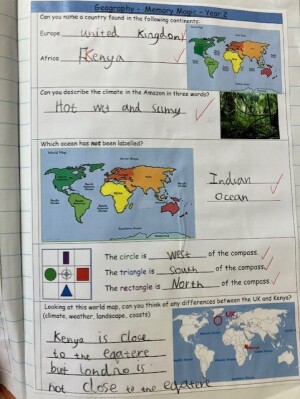 Geography - Memory Maps - Year 2
Can you name a country found in the following continents.
Europe united Kingdom
Africa Kenya
Can you describe the climate in the Amazon in three words?
Hot wet and sumy
Which ocean has not been labelled?
Indian
ocean
The circle is west of the compass.
The triangle is south of the compass.
The rectangle is North of the compass.
Looking at this world map, can you think of any differences between the UK and Kenya?
(climate, weather, landscape, coasts)
UK
Kenya is close
to the eqatere
but londno is
not close to the eqatere